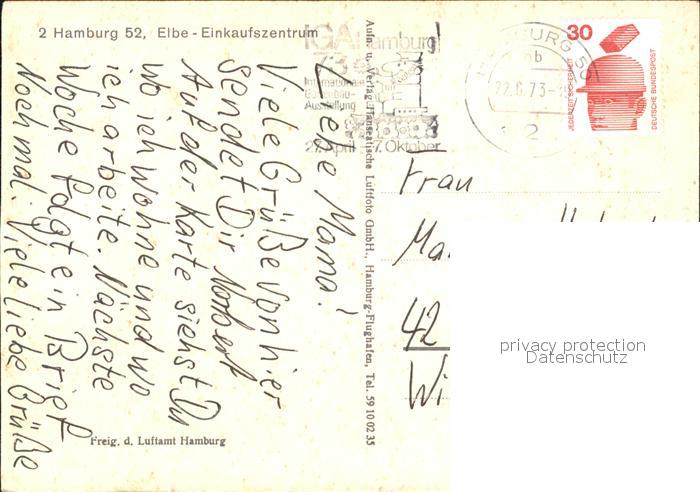 2 Hamburg 52, Elbe - Einkaufszentrum
Liebe Mama!
Viele Grüße von hier
sendet Dir Norbert
Auf der Karte siehst Du
wo ich wohne und wo
ich arbeite. Nächste
Woche folgt ein Brief
Nochmal. Viele liebe Grüße
Freig. d. Luftamt Hamburg
Aufn. u. Verlag: Hanseatische Luftfoto GmbH., Hamburg-Flughafen, Tel. 59 10 02 35
IGA Hamburg
73
Internationale
Gartenbau-
Ausstellung
27. April - 7. Oktober
22.6.73
2
30
JEDERZEIT SICHERHEIT
DEUTSCHE BUNDESPOST
Frau
42
privacy protection
Datenschutz